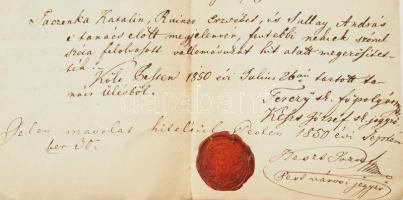 Paczenka Katalin, Rainer Erzsébet, és Sallay András
a tanács előtt megjelenvén, fentebbi nekiek szóról
szóra felolvasott vallomásaikat hit alatt megerősítet-
ték.
Költ Pesten 1850 évi Julius 26án tartott ta-
nács ülésből.
Ferczy sk. főpolgárm
József sk. jegyző
Jelen másolat hiteléül Pesten 1850 évi Septem
ber 30.
Pest városi jegyző
darabanth